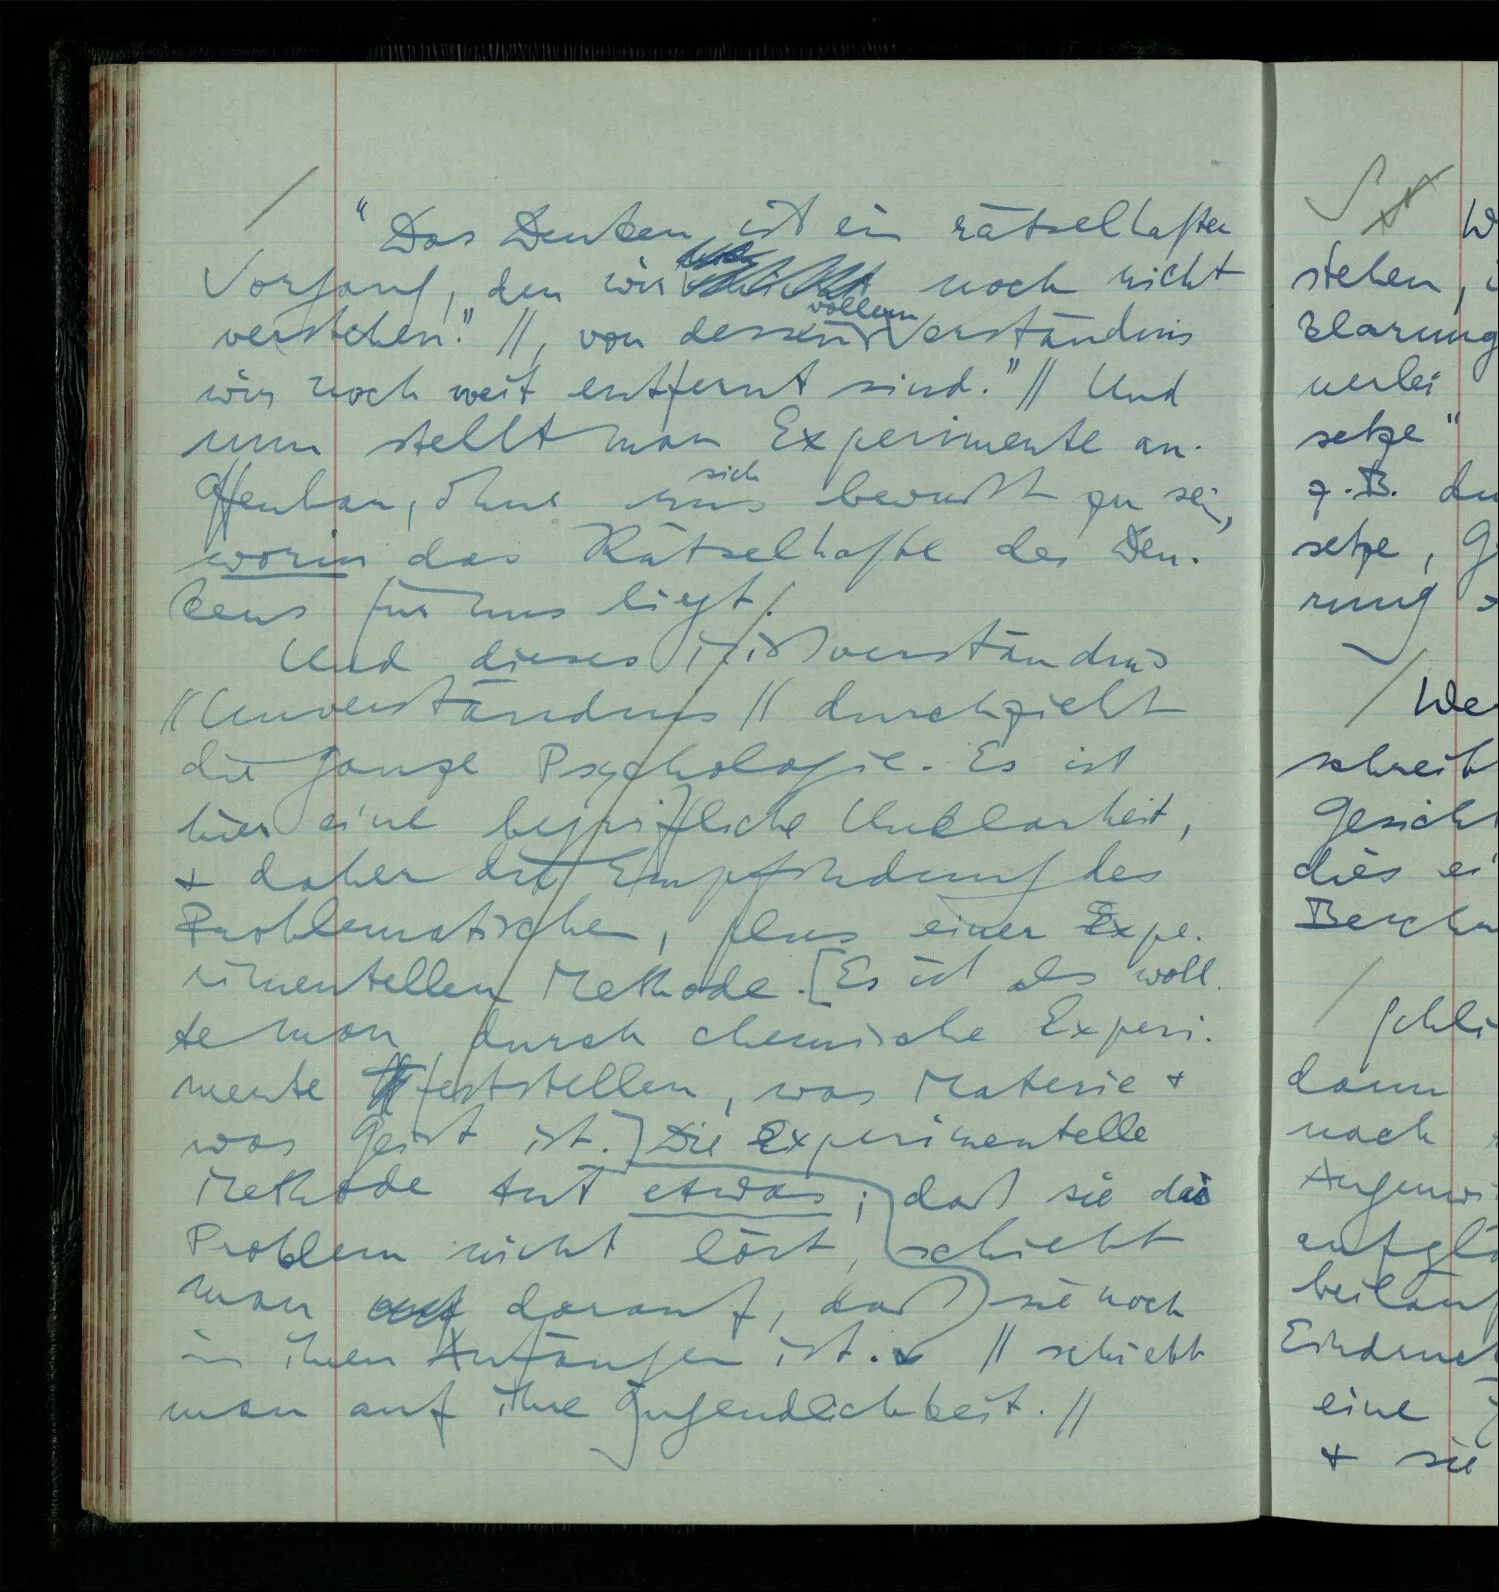 "Das Denken ist ein rätselhafter
Vorgang, den wir noch nicht
verstehen." //, von dessen vollem Verständnis
wir noch weit entfernt sind." // Und
nun stellt man Experimente an.
Offenbar, ohne uns sich bewußt zu sein,
worin das Rätselhafte des Den-
kens für uns liegt.
Und dieses Mißverständnis
// Unverständnis // durchzieht
die ganze Psychologie. Es ist
hier eine begriffliche Unklarheit,
+ daher die Empfindung des
Problematischen, plus einer Expe-
rimentellen Methode. [Es ist als woll-
te man durch chemische Experi-
mente feststellen, was Materie +
was Geist ist.] Die Experimentelle
Methode tut etwas; daß sie das
Problem nicht löst, schiebt
man darauf, daß sie noch
in ihren Anfängen ist. // schiebt
man auf ihre Jugendlichkeit. //
W
stehen,
klarung
nerlei
setze"
z.B. du
setze, G
rung
We
schreib
Gesich
dies ei
Besch
Schli
dann
nach
Augenwi
aufglä
beiläuf
Eindruck
eine
+ sie